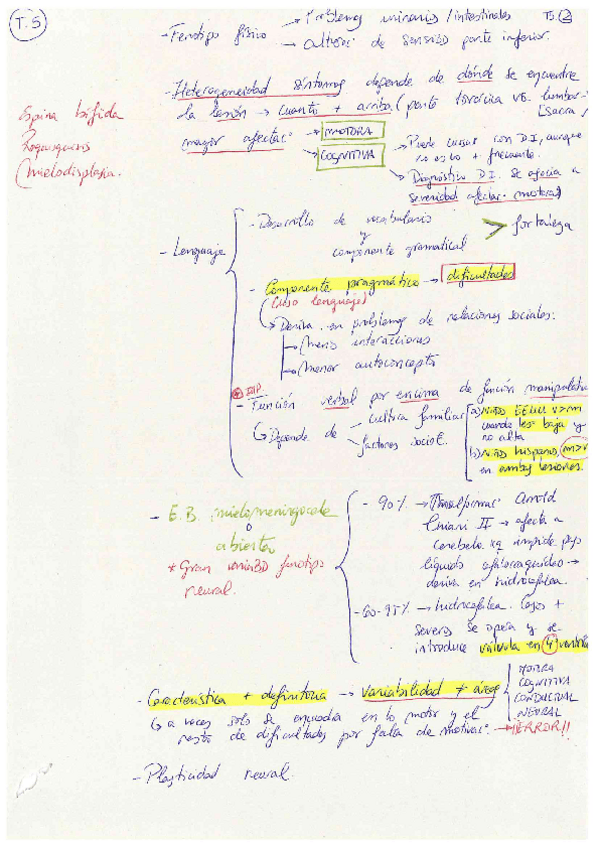 T.5
T5.②
- Fenotipo físico → Problemas urinarios/intestinales
→ alterac. de sensibD parte inferior.
- Heterogeneidad síntomas depende de dónde se encuentre
la lesión → cuanto + arriba (parte torácica vs. lumbar
(sacra)
mayor afectac. → MOTORA
→ COGNITIVA
→ Puede cursar con D.I, aunque
no es lo + frecuente.
→ Diagnóstico D.I. se asocia a
severidad afectac. motora)
Espina bífida
Mielodisplasia.
- Lenguaje
- Desarrollo de vocabulario
y
componente gramatical
> fortaleza
- Componente pragmático → dificultades
(uso lenguaje)
↳ Deriva en problemas de relaciones sociales:
→ Menos interacciones
→ Menor autoconcepto
IMP.
- Función verbal por encima de función manipulativa
↳ Depende de cultura familiar
factores socioE.
a) niños EEUU v>m
cuando les. baja y
no alta
b) niños hispanos, m>v
en ambas lesiones.
- E.B. mielomeningocele
o
abierta
* Gran variabD fenotipo
neural.
- 90% → Malformac. Arnold
Chiari II → afecta a
cerebelo xq impide paso
líquido cefalorraquídeo →
deriva en hidrocefalea.
- 80-95% → hidrocefalea. Casos +
severos se opera y se
introduce válvula en 4º ventríc
- Característica + definitoria → variabilidad ≠ áreas
MOTORA
COGNITIVA
CONDUCTUAL
NEURAL
↳ a veces solo se encuadra en lo motor y el
resto de dificultades por falta de motivac. → ¡ERROR!!
- Plasticidad neural.